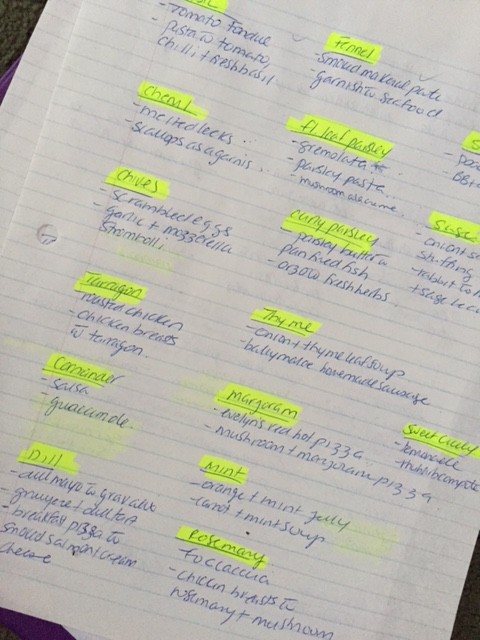 - Tomato Fondue
- Pasta w tomato,
chilli + fresh basil
Chervil
- melted leeks
- scallops as a garnis
Chives
- scrambled eggs
- garlic + mozzerella
Stromboli
Tarragon
- roasted chicken
- chicken breasts
w tarragon
Coriander
- salsa
- guacamole
Dill
- dill mayo w gravadlx
- gruyere + dill tart
- breakfast pizza w
smoked salmon + cream
cheese
Fennel
- smoked mackerel pate
- garnish to seafood
flat leaf parsley
- gremolata
- parsley paste
- mushroom
curly parsley
- parsley butter w
pan fried fish
- orzo w fresh herbs
Thyme
- onion + thyme leaf soup
- ballymaloe homemade sausage
Marjoram
- evelyn's red hot pizza
- mushroom + marjoram pizza
Mint
- orange + mint jelly
- carrot + mint soup
Rosemary
- foccaccia
- chicken breasts w
rosemary + mushroom
- onion
stuffing
- rabbit
+ sage
Sweet Cicely
- lemonade
- rhubarb compote